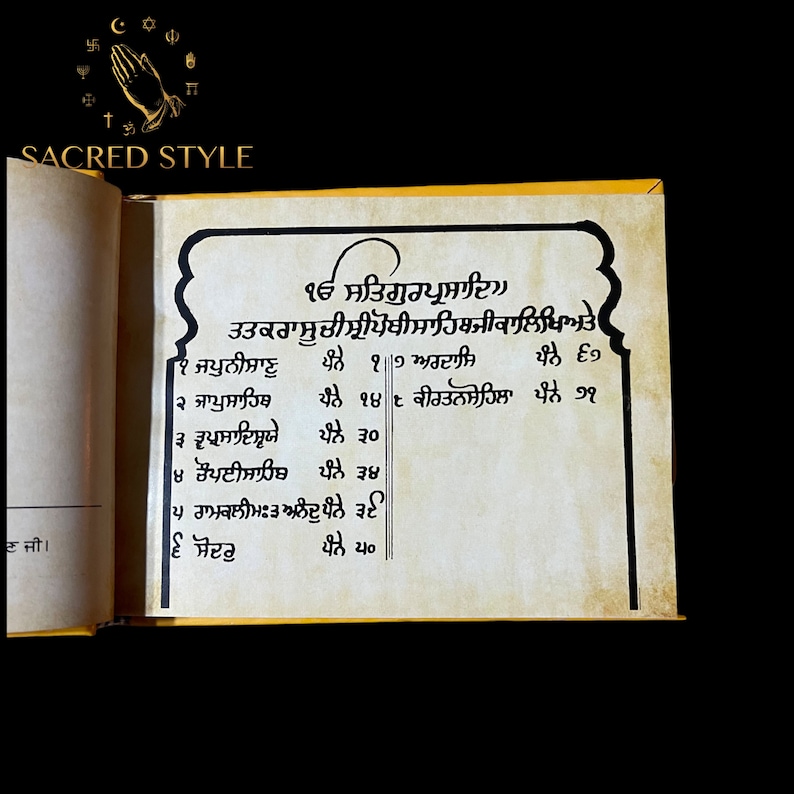 SACRED STYLE
ੴ ਸਤਿਗੁਰਪ੍ਰਸਾਦਿ॥
ਤਤਕਰਾਸੂਚੀਸ੍ਰੀਪੋਥੀਸਾਹਿਬਜੀਕਾਲਿਖਿਅਤੇ
੧ ਜਪੁਨੀਸਾਣੁ ਪੰਨੇ ੧
੨ ਜਾਪੁਸਾਹਿਬ ਪੰਨੇ ੧੪
੩ ਤ੍ਵਪ੍ਰਸਾਦਿਸ੍ਵਯੇ ਪੰਨੇ ੩੦
੪ ਚੌਪਈਸਾਹਿਬ ਪੰਨੇ ੩੪
੫ ਰਾਮਕਲੀਮਃ੩ਅਨੰਦੁ ਪੰਨੇ ੩੯
੬ ਸੋਦਰੁ ਪੰਨੇ ੫੦
੭ ਅਰਦਾਸਿ ਪੰਨੇ ੬੭
੮ ਕੀਰਤਨੋਸੋਹਿਲਾ ਪੰਨੇ ੭੧
ਜੀ।